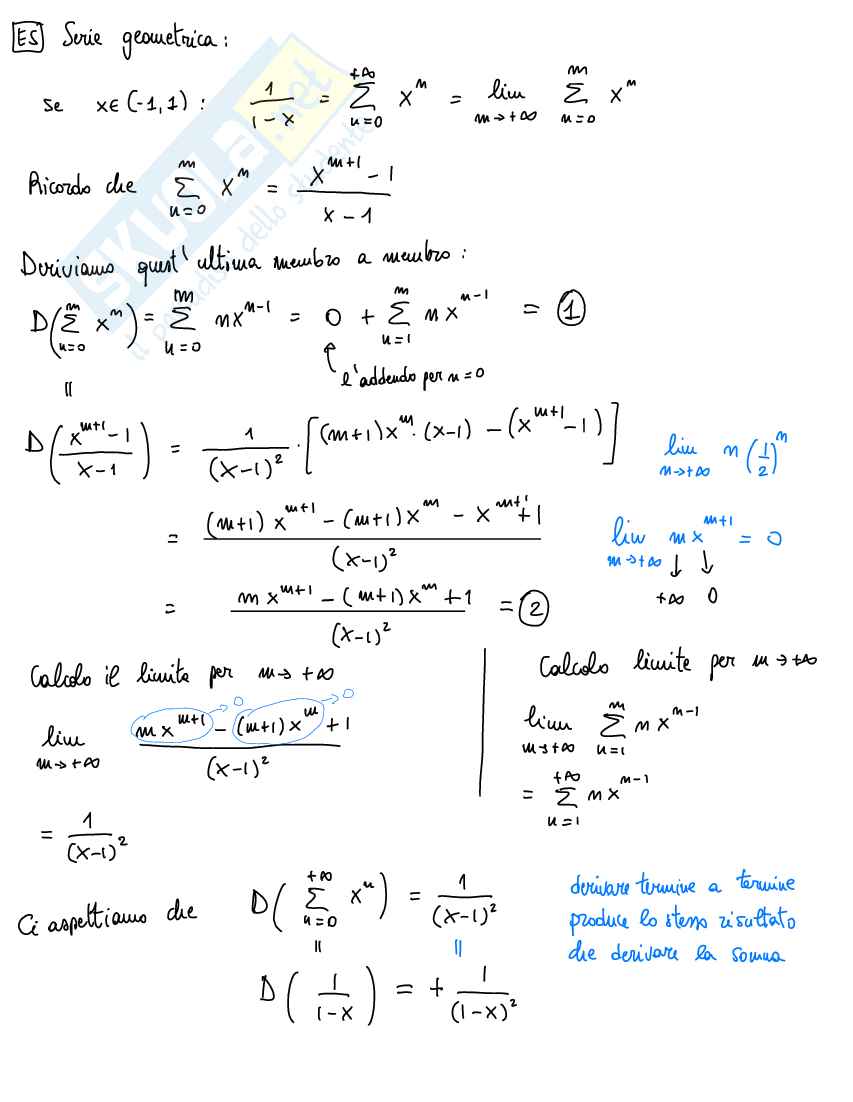 ES Serie geometrica:
se x∈(-1,1): 1/(1-x) = ∑_{n=0}^{+∞} x^n = lim_{m→+∞} ∑_{n=0}^{m} x^n
Ricordo che ∑_{n=0}^{m} x^n = (x^{m+1} - 1)/(x - 1)
Deriviamo quest'ultima membro a membro:
D(∑_{n=0}^{m} x^n) = ∑_{n=0}^{m} nx^{n-1} = 0 + ∑_{n=1}^{m} nx^{n-1} = ①
l'addendo per n=0
=
D((x^{m+1} - 1)/(x - 1)) = 1/(x-1)^2 · [(m+1)x^m · (x-1) - (x^{m+1} - 1)]
lim_{n→+∞} n(1/2)^n
= ((m+1)x^{m+1} - (m+1)x^m - x^{m+1} + 1)/(x-1)^2
lim_{m→+∞} mx^{m+1} = 0
↓ ↓
+∞ 0
= (mx^{m+1} - (m+1)x^m + 1)/(x-1)^2 = ②
Calcolo il limite per m→+∞
lim_{m→+∞} (mx^{m+1} - (m+1)x^m + 1)/(x-1)^2
→0 →0
= 1/(x-1)^2
Calcolo limite per m→+∞
lim_{m→+∞} ∑_{n=1}^{m} nx^{n-1}
= ∑_{n=1}^{+∞} nx^{n-1}
Ci aspettiamo che D(∑_{n=0}^{+∞} x^n) = 1/(x-1)^2
= =
D(1/(1-x)) = + 1/(1-x)^2
derivare termine a termine
produce lo stesso risultato
che derivare la somma
SKUOLA.net
il paradiso dello studente